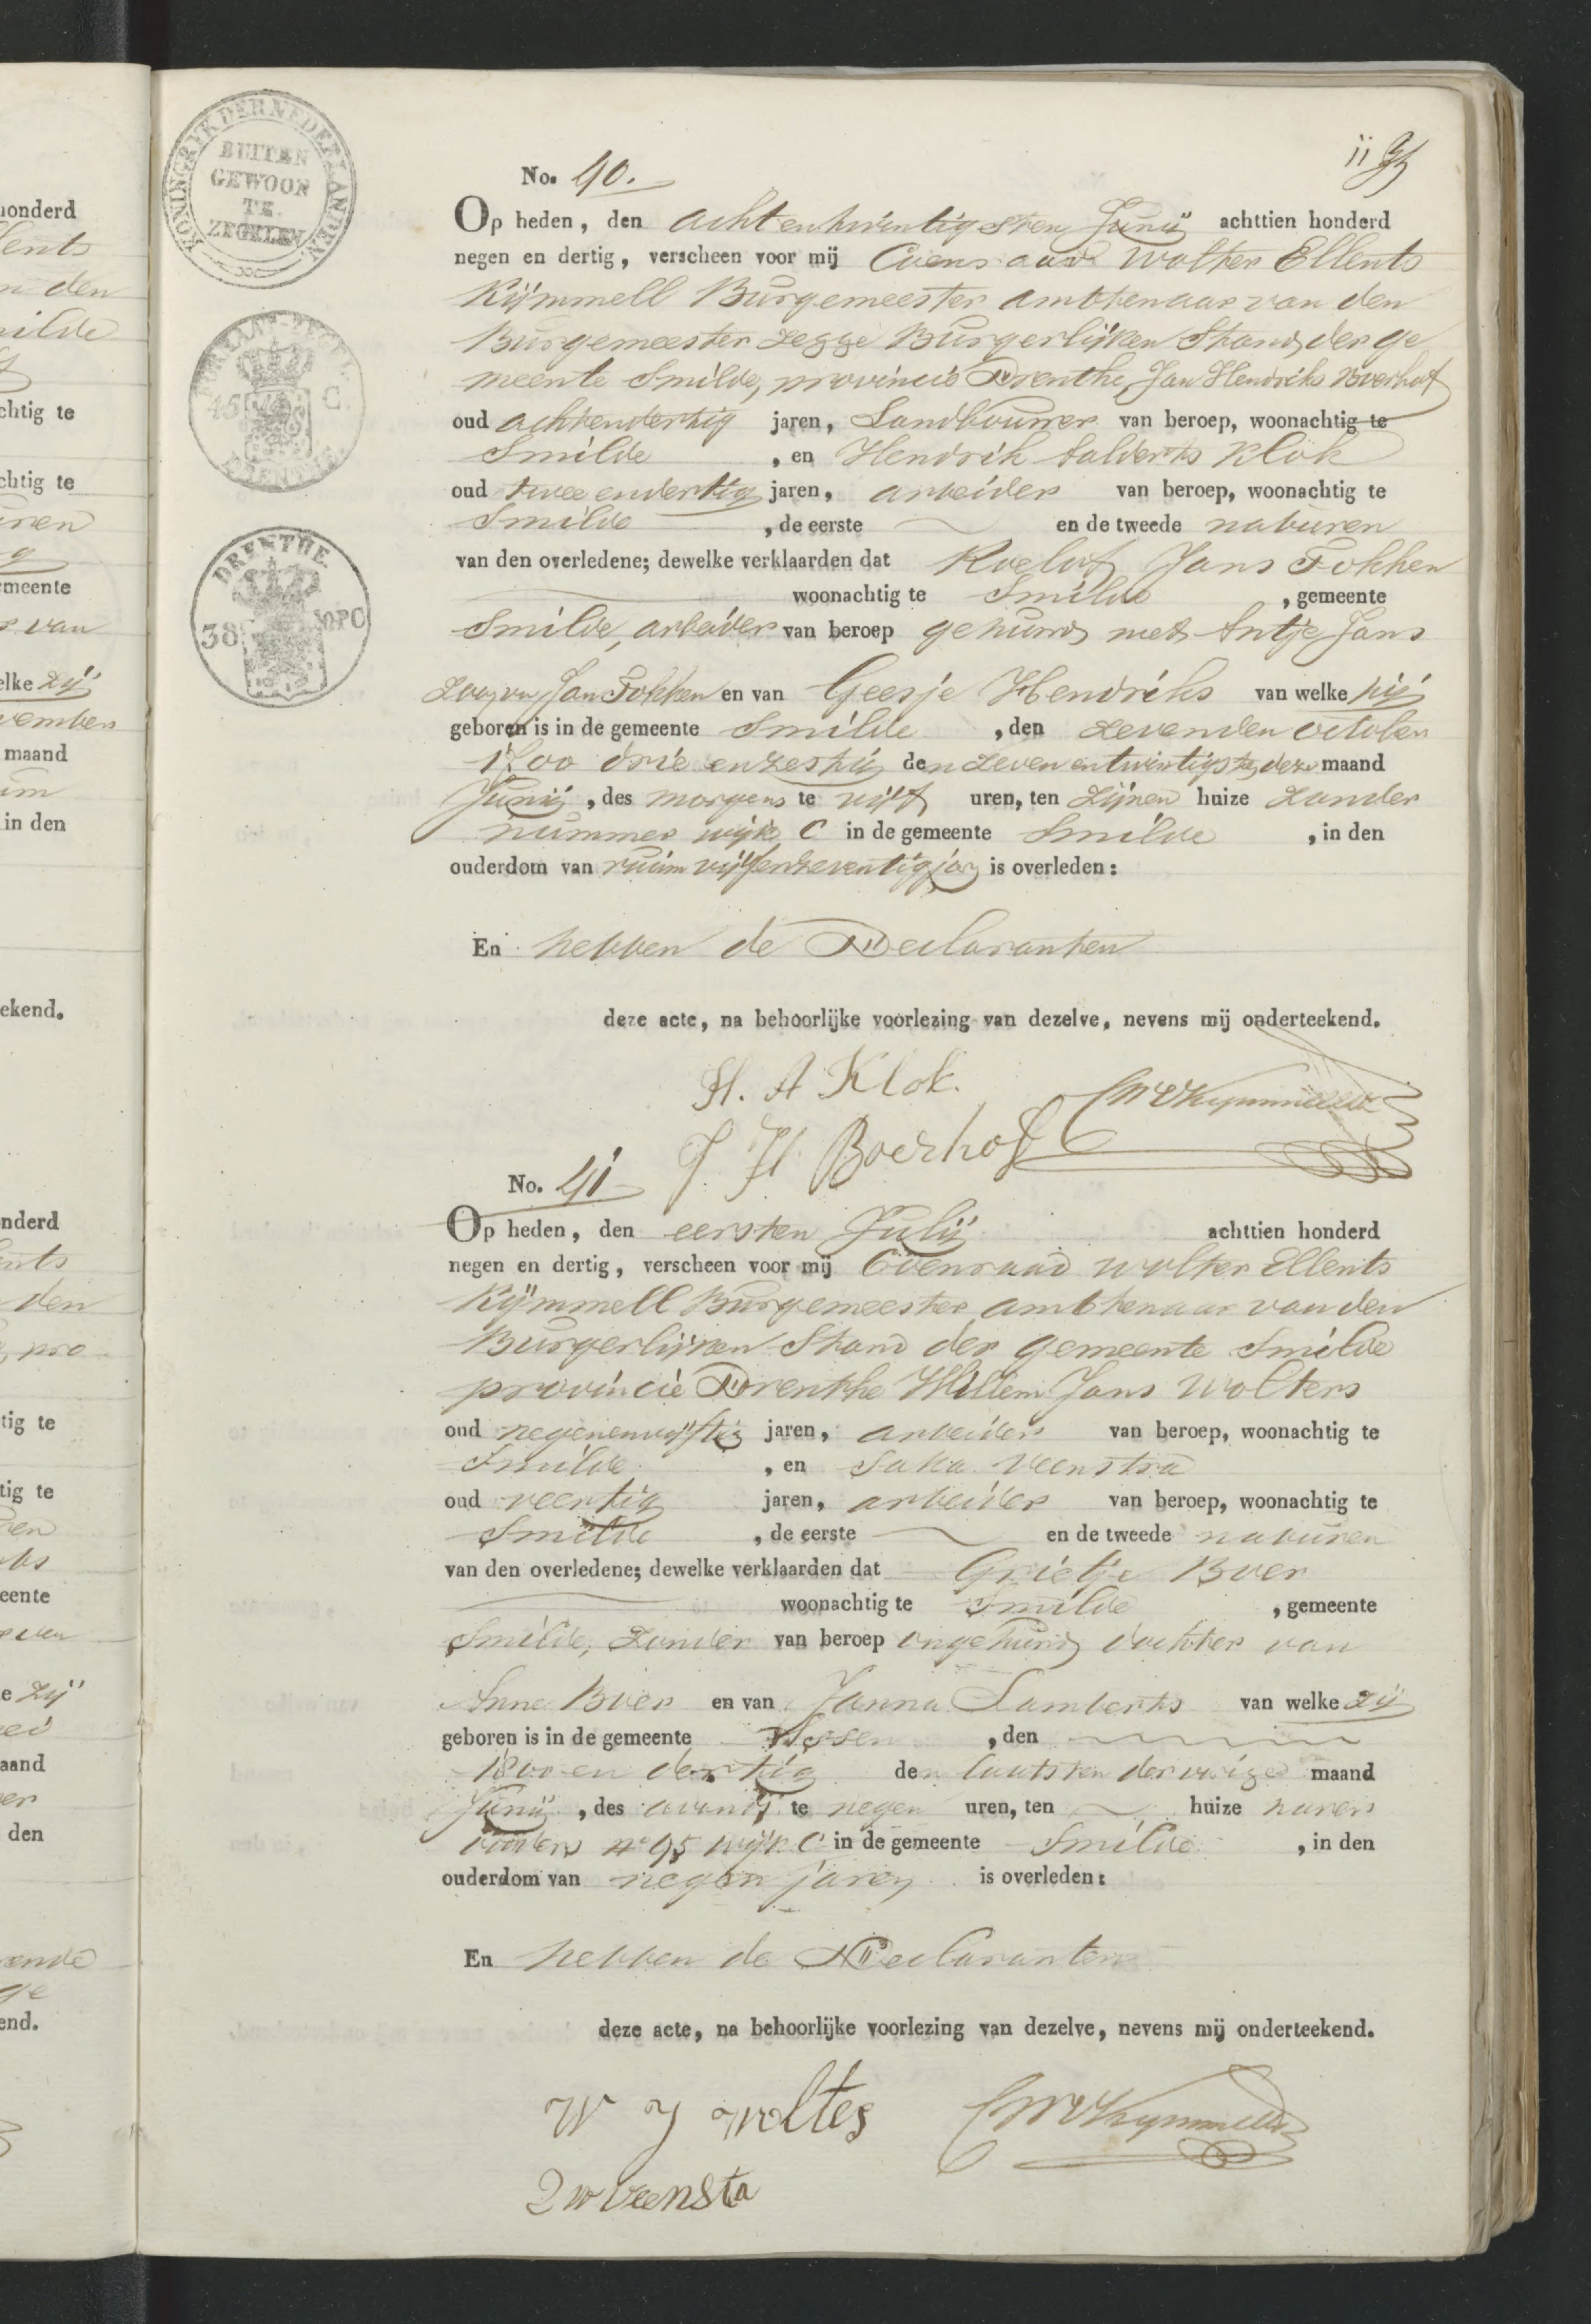 KONINGRYK DER NEDERLANDEN.
BUITEN
GEWOON
TE
ZEGELEN
45 C.
DRENTHE.
DRENTHE.
38 OPC
No. 40.
Op heden, den achtentwintigsten Junij achttien honderd
negen en dertig, verscheen voor mij Coenraad Wolter Ellents
Kijmmell Burgemeester ambtenaar van den
Burgemeester zegge Burgerlijken Stand der ge
meente Smilde, provincie Drenthe Jan Hendriks Boerhof
oud achtendertig jaren, Landbouwer van beroep, woonachtig te
Smilde, en Hendrik Aalderts Klok
oud twee endertig jaren, arbeider van beroep, woonachtig te
Smilde, de eerste en de tweede naburen
van den overledene; dewelke verklaarden dat Roelof Jans Fokken
woonachtig te Smilde, gemeente
Smilde, arbeider van beroep gehuwd met Antje Jans
Zoon van Jan Fokken en van Geesje Hendriks van welke hij
geboren is in de gemeente Smilde, den zevenden october
1700 drie enzestig den zeven entwintigsten deze maand
Junij, des morgens te vijf uren, ten zijnen huize zonder
nummer wijk C in de gemeente Smilde, in den
ouderdom van ruim vijfenzeventig jaren is overleden:
En hebben de Declaranten
deze acte, na behoorlijke voorlezing van dezelve, nevens mij onderteekend.
H. A Klok.
CWEKymmell
J. H. Boerhof
No. 41
Op heden, den eersten Julij achttien honderd
negen en dertig, verscheen voor mij Coenraad Wolter Ellents
Kijmmell Burgemeester ambtenaar van den
Burgerlijken Stand der gemeente Smilde
provincie Drenthe Willem Jans Wolters
oud negenenvijftig jaren, arbeider van beroep, woonachtig te
Smilde, en Veenstra
oud veertig jaren, arbeider van beroep, woonachtig te
Smilde, de eerste en de tweede naburen
van den overledene; dewelke verklaarden dat Grietje Boer
woonachtig te Smilde, gemeente
Smilde, zonder van beroep ongehuwd dochter van
Anne Boer en van Janna Lamberts van welke zij
geboren is in de gemeente Assen, den
1800 en dertig den laatsten der vorige maand
Junij, des avonds te negen uren, ten huize harer
ouders no 95 wijk C in de gemeente Smilde, in den
ouderdom van negen jaren is overleden:
En hebben de Declaranten
deze acte, na behoorlijke voorlezing van dezelve, nevens mij onderteekend.
W J woltes
CWEKymmell
veensta